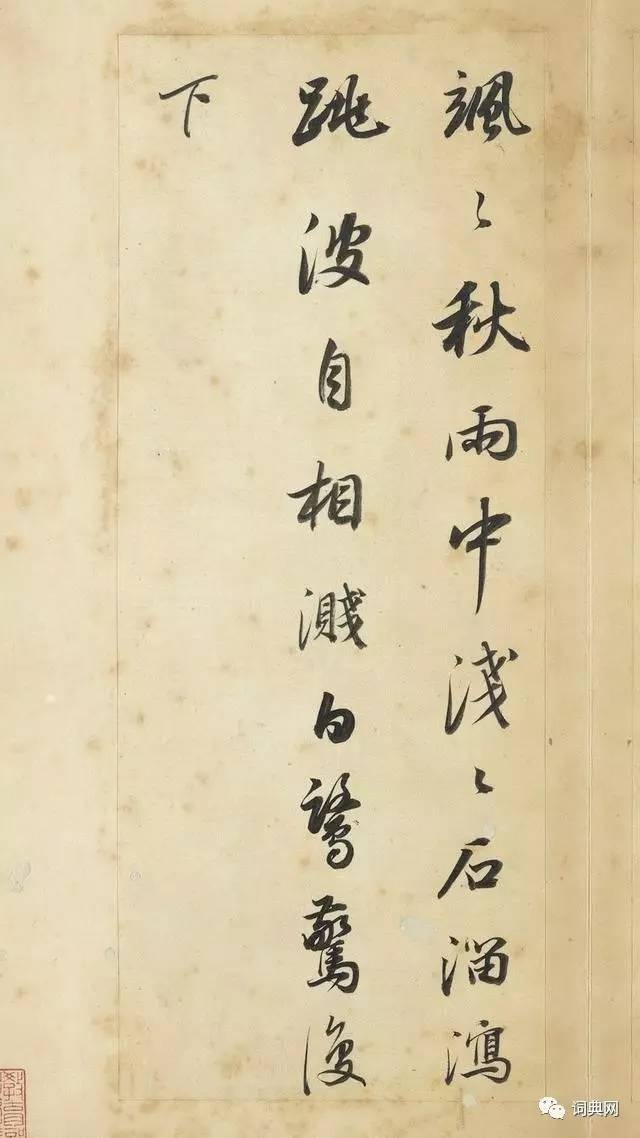 颯〻秋雨中淺〻石溜瀉
跳波自相濺白鷺驚復
下
词典网